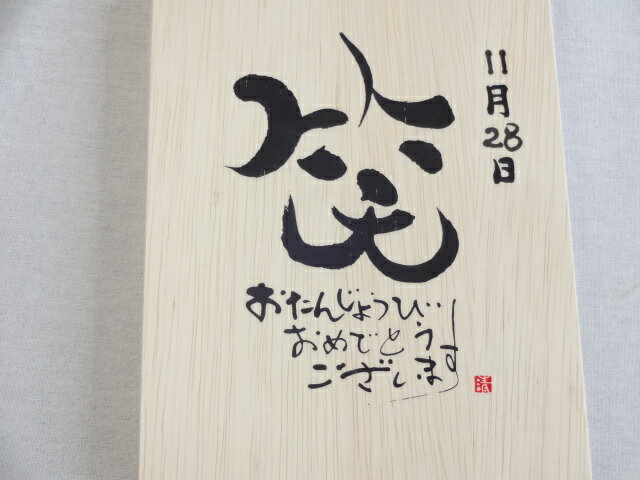 11月28日
笑
おたんじょうび
おめでとう
ございます